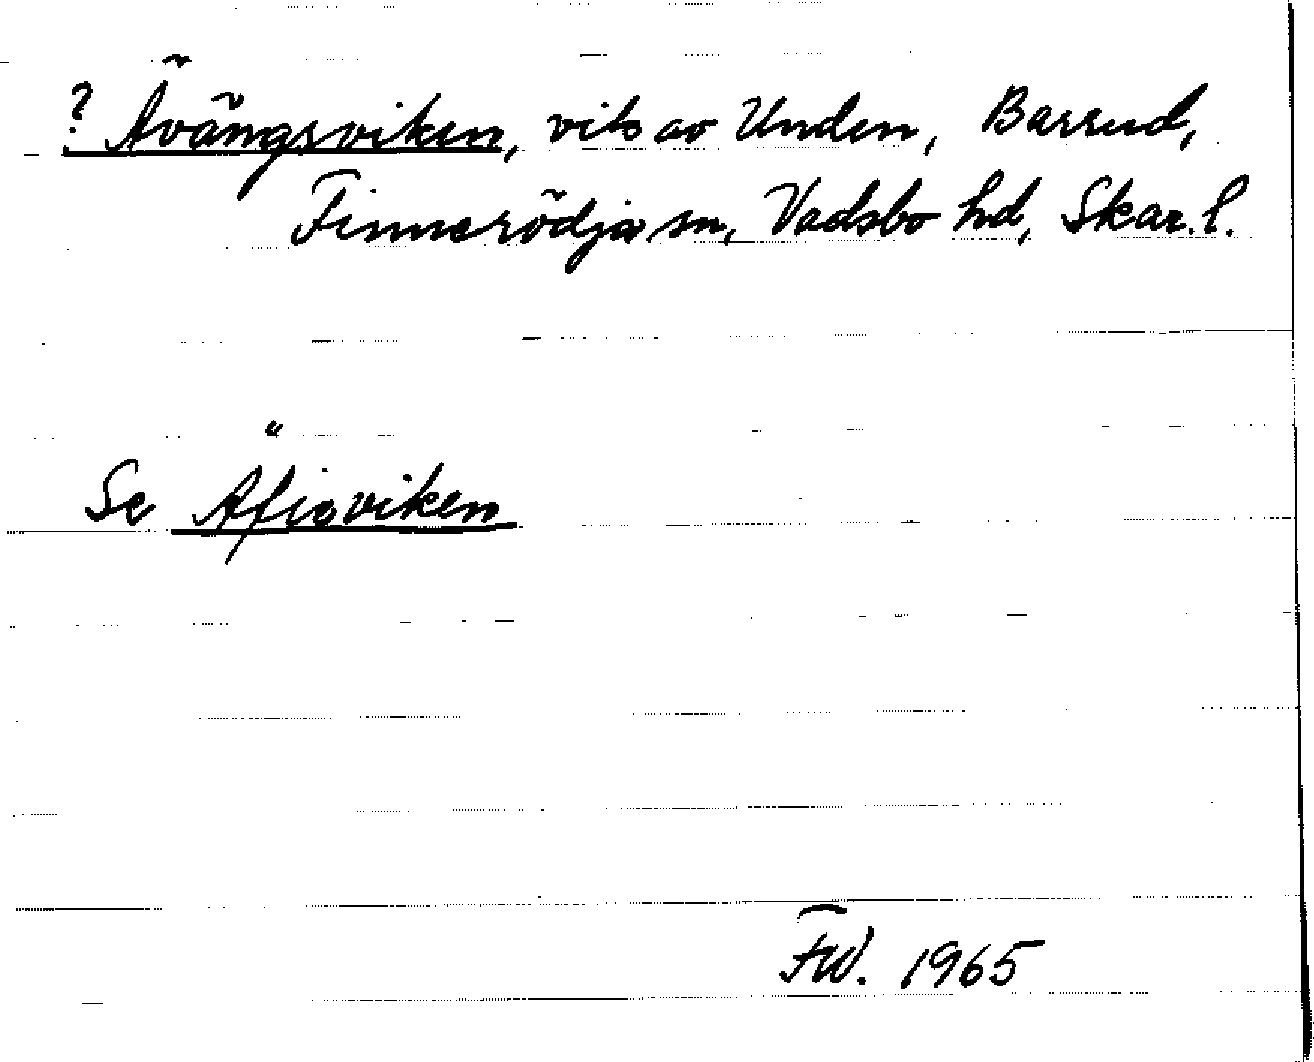 ? Ävängsviken, vik av Unden, Barrud,
Finnerödja sn, Vadsbo hd, Skar. l.
Se Äfjaviken
FW. 1965